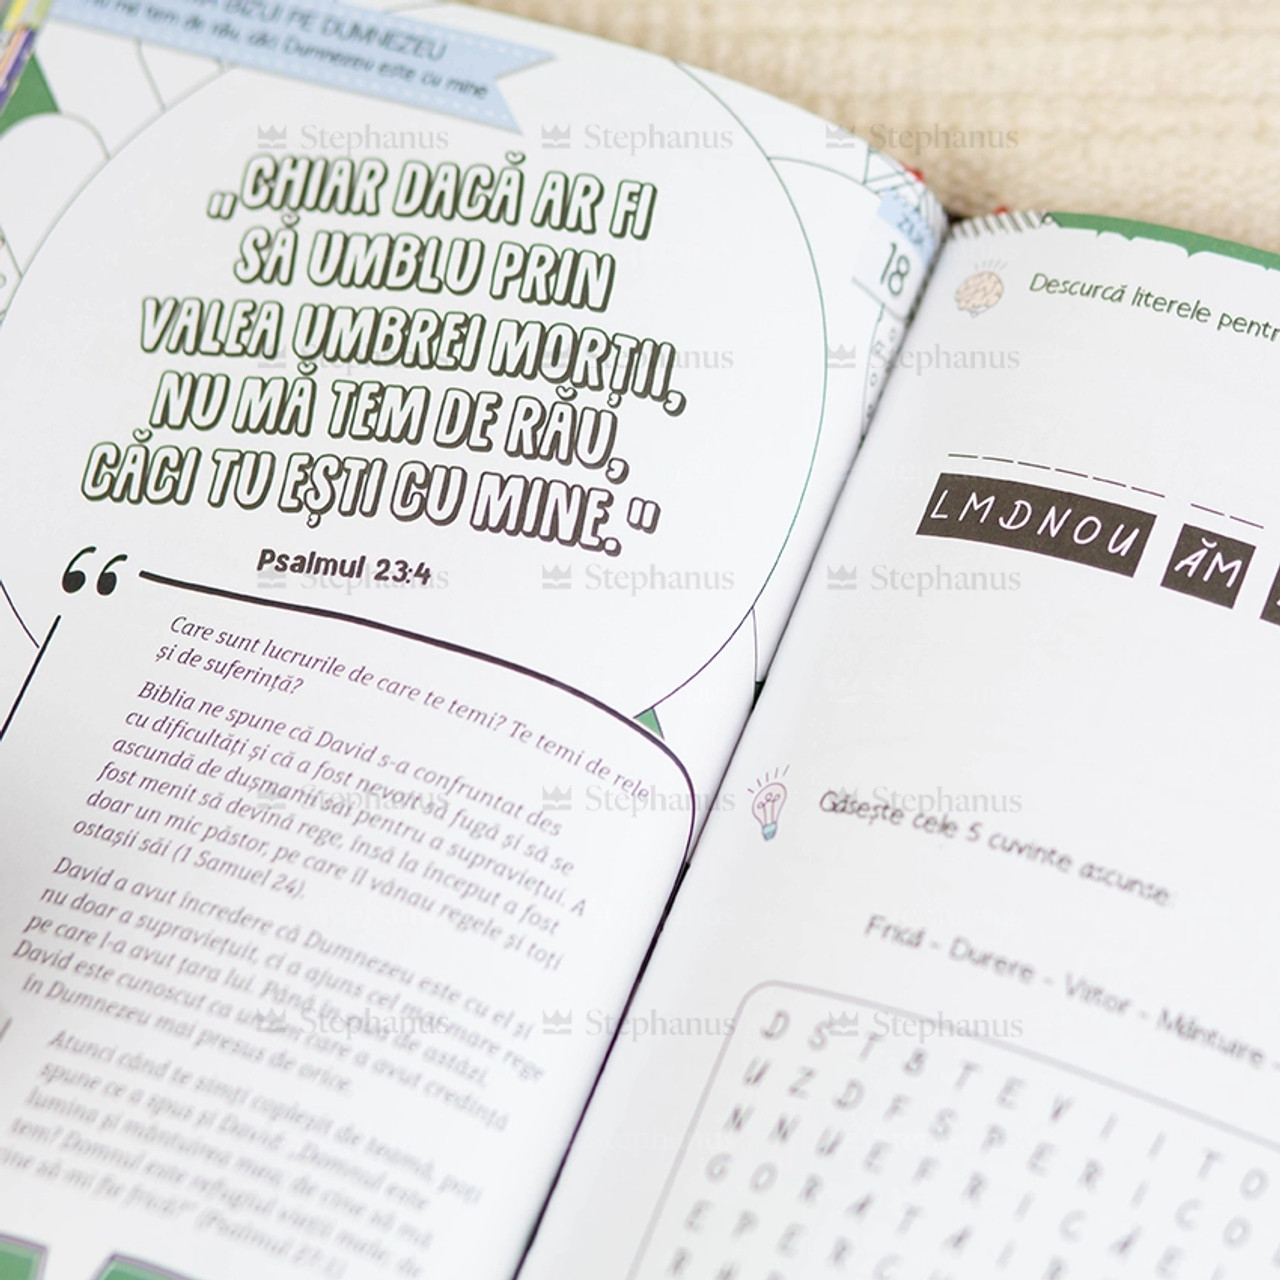 BIZUI PE DUMNEZEU
mă tem de rău, căci Dumnezeu este cu mine
„CHIAR DACĂ AR FI
SĂ UMBLU PRIN
VALEA UMBREI MORȚII,
NU MĂ TEM DE RĂU,
CĂCI TU EȘTI CU MINE."
Psalmul 23:4
Care sunt lucrurile de care te temi? Te temi de rele
și de suferință?
Biblia ne spune că David s-a confruntat des
cu dificultăți și că a fost nevoit să fugă și să se
ascundă de dușmanii săi pentru a supraviețui. A
fost menit să devină rege, însă la început a fost
doar un mic păstor, pe care îl vânau regele și toți
ostașii săi (1 Samuel 24).
David a avut încredere că Dumnezeu este cu el și
nu doar a supraviețuit, ci a ajuns cel mai mare rege
pe care l-a avut țara lui. Până în ziua de astăzi,
David este cunoscut ca un om care a avut credință
în Dumnezeu mai presus de orice.
Atunci când te simți copleșit de teamă, poți
spune ce a spus și David: „Domnul este
lumina și mântuirea mea; de cine să mă
tem? Domnul este refugiul vieții mele; de
cine să-mi fie frică?" (Psalmul 27:1)
ZIUA
18
Descurcă literele pentr
LMDNOU ĂM
Găsește cele 5 cuvinte ascunse:
Frică - Durere - Viitor - Mântuire -
D S T B T E V I I T O
U Z D F S P E R I C O
N N U E F R I C Ă E
G O R A T A I R
E P E R C
Stephanus Stephanus Stephanus
Stephanus Stephanus Stephanus
Stephanus Stephanus Stephanus
Stephanus Stephanus Stephanus
Stephanus Stephanus Stephanus